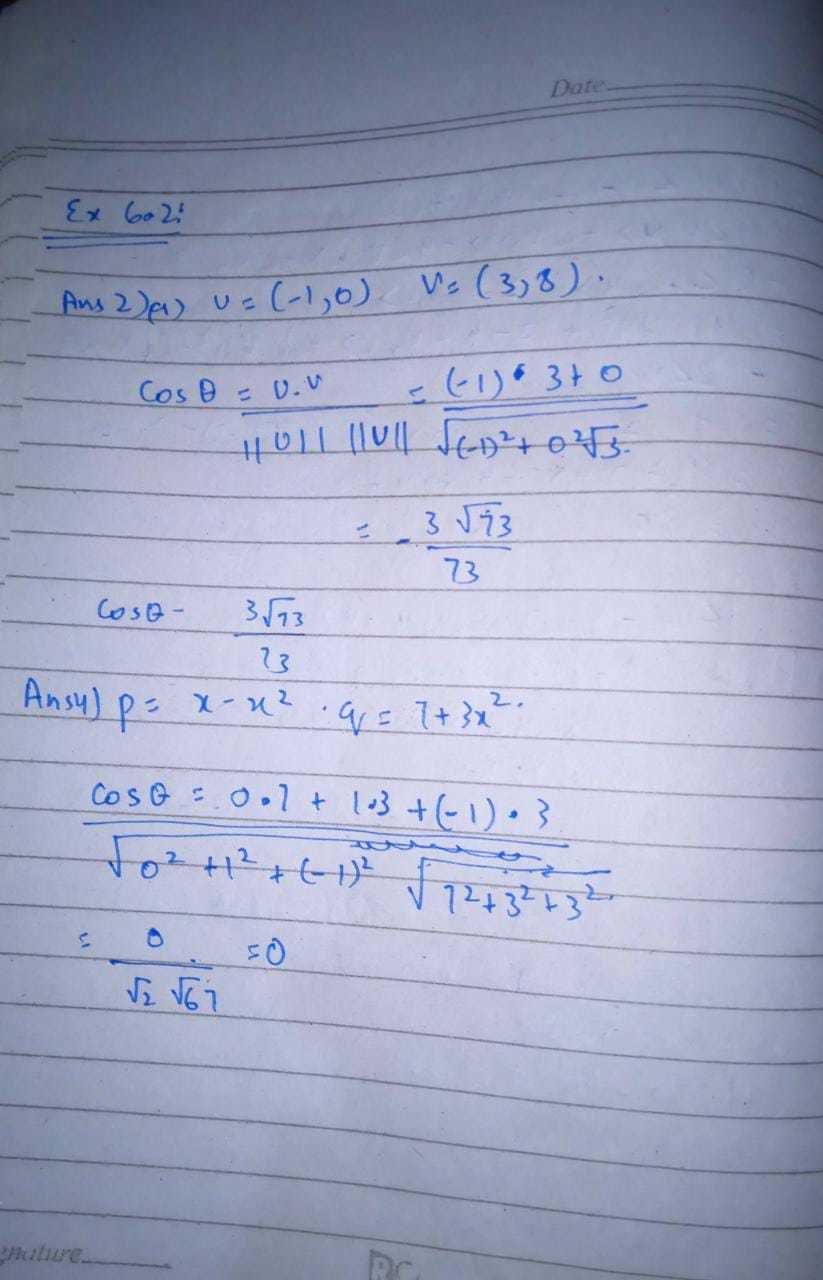 Date
Ex 6.2:
Ans 2)a) u = (-1,0) v = (3,8).
Cos θ = u.v / ||u|| ||v|| = (-1) • 3 + 0 / √(-1)² + 0² √3.
= - 3√73 / 73
Cosθ - 3√73 / 73
Ans4) p = x - x² . q = 7 + 3x².
Cos θ = 0.7 + 1.3 + (-1) . 3
√0² + 1² + (-1)² √7² + 3² + 3²
= 0 / √2 √67 = 0
gnature
RC